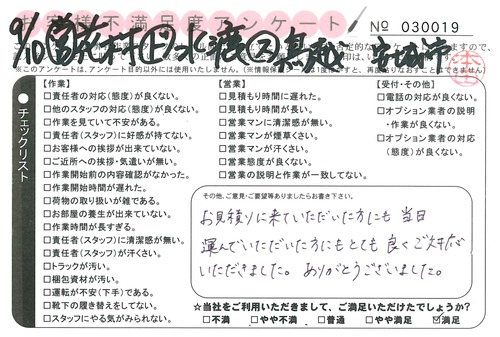 お客様不満足度アンケート
No 030019
※このアンケートは、アンケート目的以外には使用いたしません。
チェックリスト
【作業】
□責任者の対応（態度）が良くない。
□他のスタッフの対応（態度）が良くない。
□作業を見ていて不安がある。
□責任者（スタッフ）に好感が持てない。
□お客様への挨拶が出来ていない。
□ご近所への挨拶・気遣いが無い。
□作業開始前の内容確認がなかった。
□作業開始時間が遅れた。
□荷物の取り扱いが雑である。
□お部屋の養生が出来ていない。
□作業時間が長すぎる。
□責任者（スタッフ）に清潔感が無い。
□責任者（スタッフ）が汗くさい。
□トラックが汚い。
□梱包資材が汚い。
□運転が不安（下手）である。
□靴下の履き替えをしてない。
□スタッフにやる気がみられない。
【営業】
□見積もり時間に遅れた。
□見積もり時間が長い。
□営業マンに清潔感が無い。
□営業マンが煙草くさい。
□営業マンが汗くさい。
□営業態度が良くない。
□営業の説明と作業が一致してない。
【受付・その他】
□電話の対応が良くない。
□オプション業者の説明
・作業が良くない。
□オプション業者の対応
（態度）が良くない。
その他、ご意見・ご要望等ありましたらお書き下さい。
お見積りに来ていただいた方にも 当日
運んでいただいた方にもとても良くご対応
いただきました。ありがとうございました。
☆当社をご利用いただきまして、ご満足いただけたでしょうか?
□不満 □やや不満 □普通 □やや満足 ☑満足